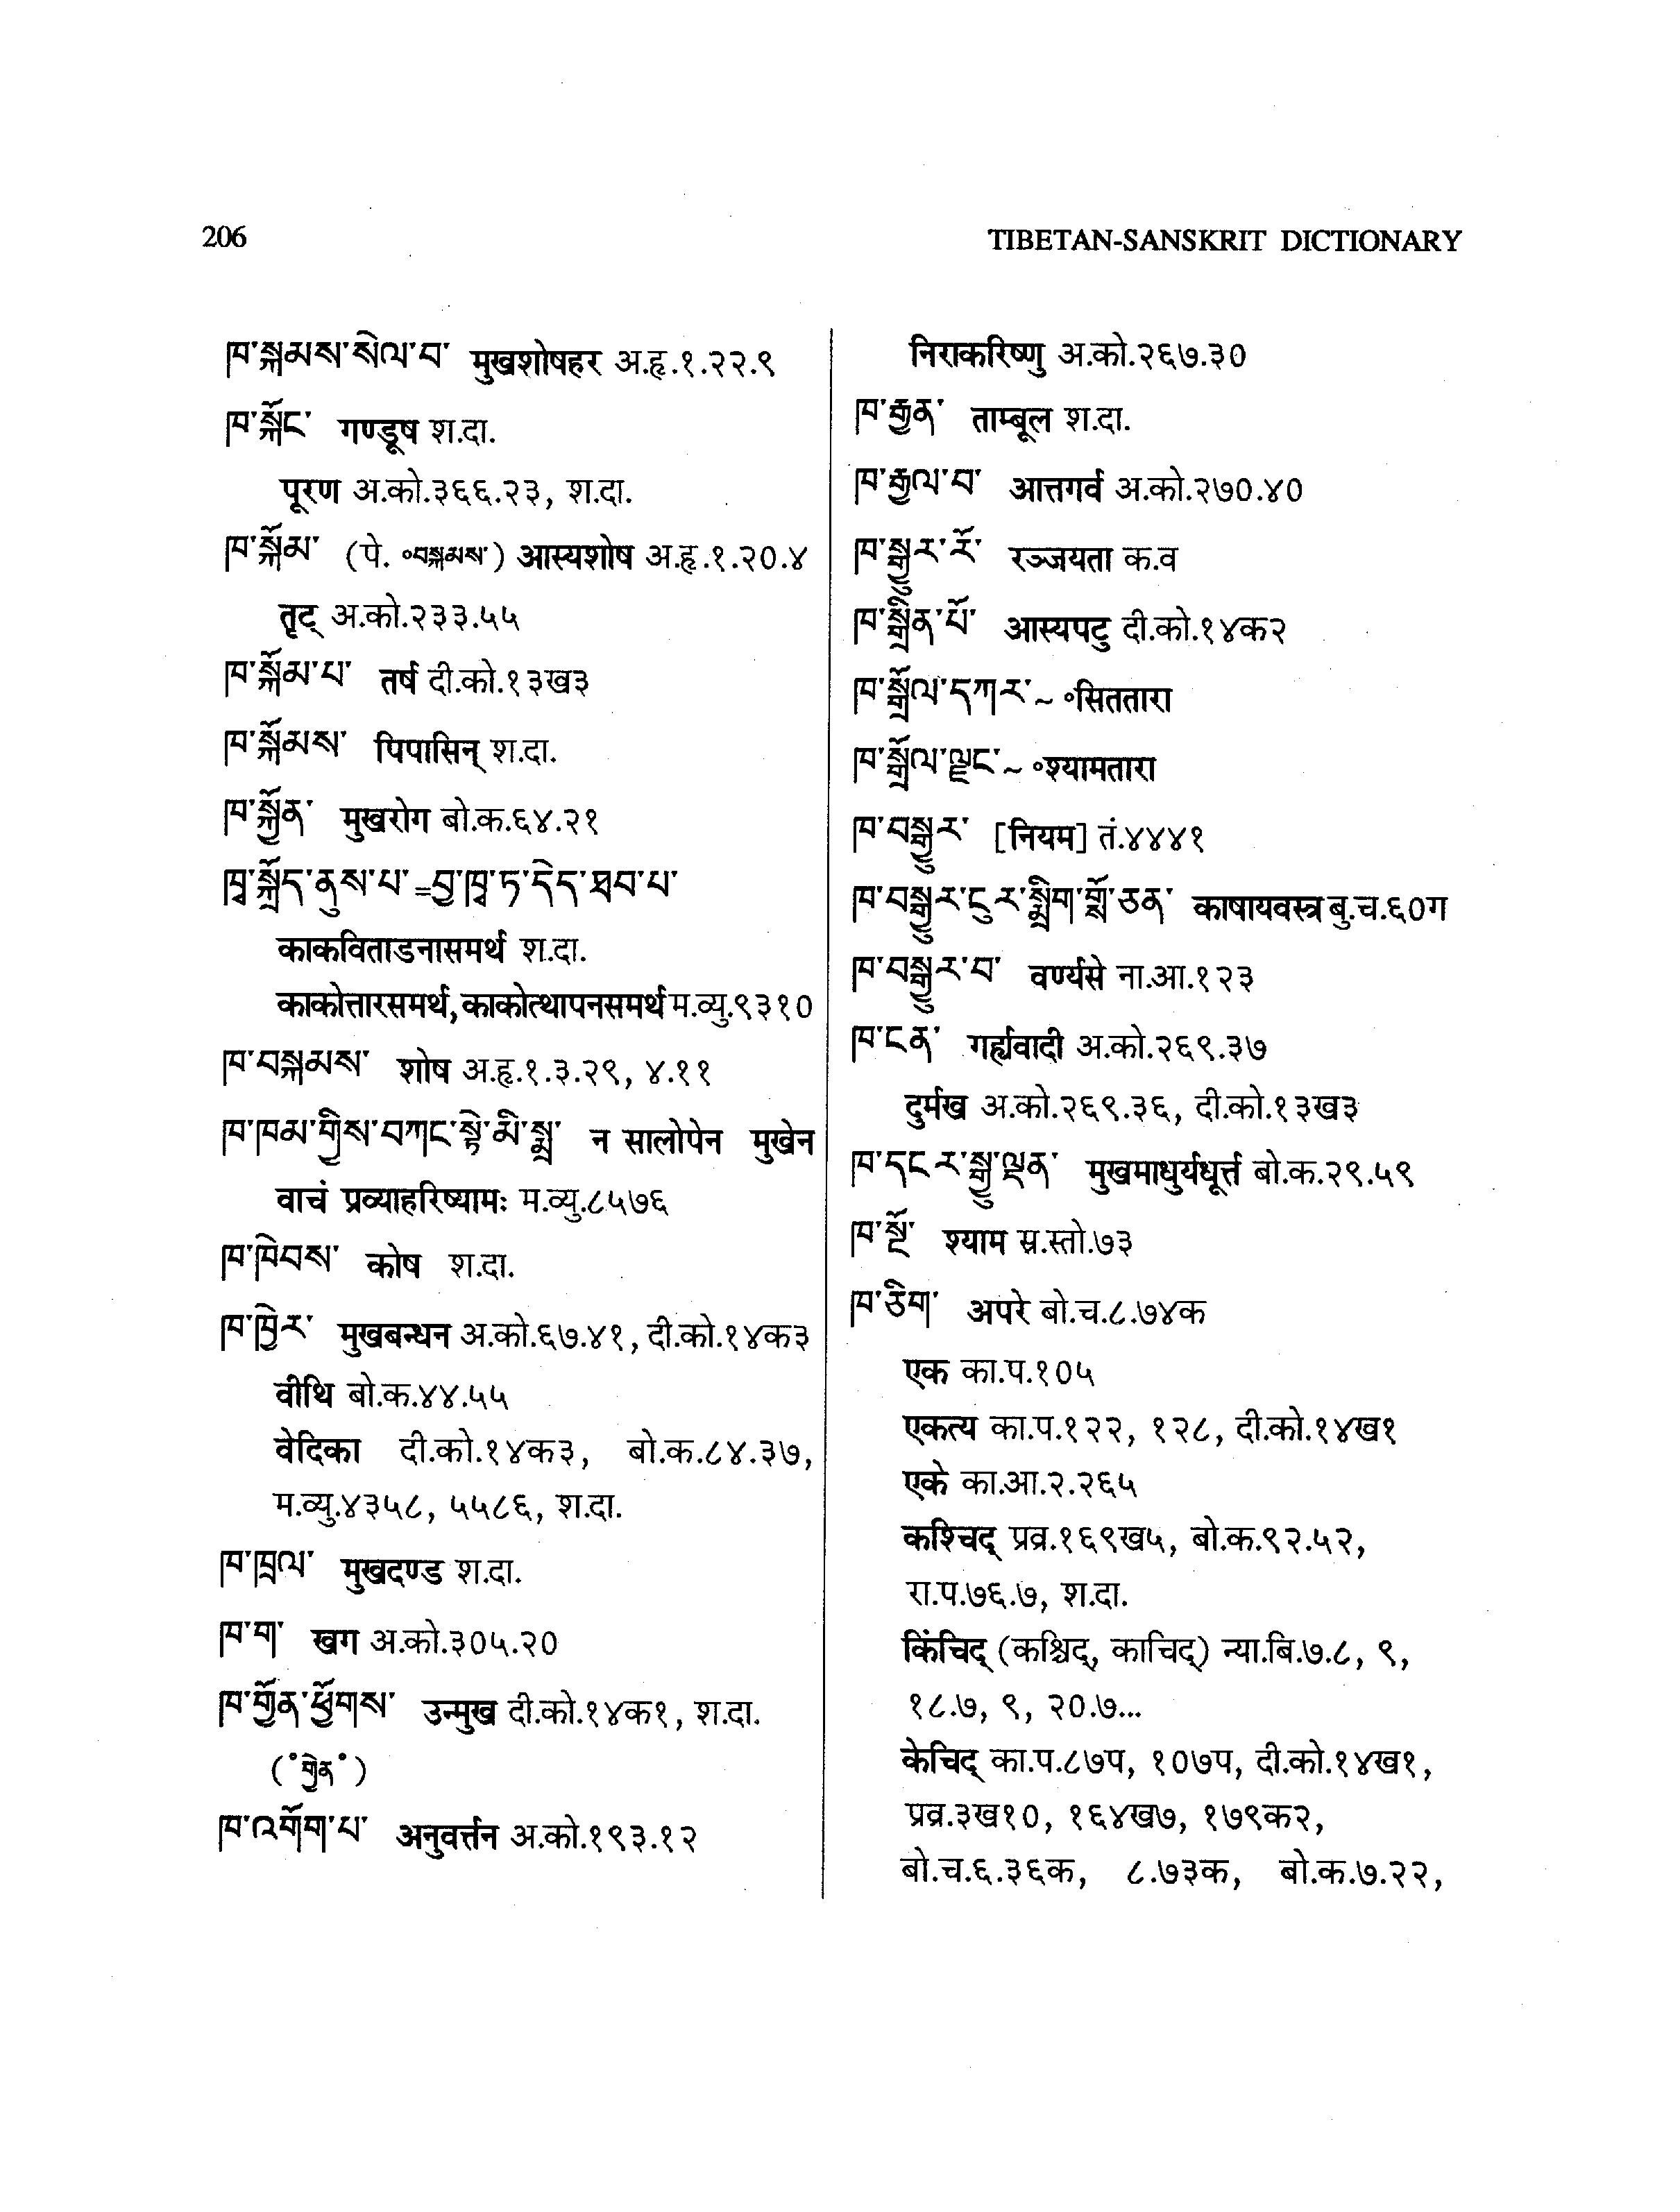 206
TIBETAN-SANSKRIT DICTIONARY
ཁ་སྐམས་སེལ་བ་ मुखशोषहर अ.हृ.१.२२.९
ཁ་སྐོང་ गण्डूष श.दा.
पूरण अ.को.३६६.२३, श.दा.
ཁ་སྐོམ་ (पे. ॰བསྐམས་) आस्यशोष अ.हृ.१.२०.४
तृट् अ.को.२३३.५५
ཁ་སྐོམ་པ་ तर्ष दी.को.१३ख३
ཁ་སྐོམས་ पिपासिन् श.दा.
ཁ་སྐྱོན་ मुखरोग बो.क.६४.२१
ཁྭ་སྐྲོད་ནུས་པ་=བྱ་ཁྭ་ཏ་དེད་ཐབ་པ་
काकविताडनासमर्थ श.दा.
काकोत्तारसमर्थ, काकोत्थापनसमर्थ म.व्यु.९३१०
ཁ་བསྐམས་ शोष अ.हृ.१.३.२९, ४.११
ཁ་ཁམ་གྱིས་བཀང་སྟེ་མི་སྨྲ་ न सालोपेन मुखेन
वाचं प्रव्याहरिष्यामः म.व्यु.८५७६
ཁ་ཁེབས་ कोष श.दा.
ཁ་ཁྱེར་ मुखबन्धन अ.को.६७.४१, दी.को.१४क३
वीथि बो.क.४४.५५
वेदिका दी.को.१४क३, बो.क.८४.३७,
म.व्यु.४३५८, ५५८६, श.दा.
ཁ་ཁྲལ་ मुखदण्ड श.दा.
ཁ་ག་ खग अ.को.३०५.२०
ཁ་གྱོན་ཕྱོགས་ उन्मुख दी.को.१४क१, श.दा.
(॰གྱེན॰)
ཁ་འགོག་པ་ अनुवर्त्तन अ.को.१९३.१२
निराकरिष्णु अ.को.२६७.३०
ཁ་རྒྱན་ ताम्बूल श.दा.
ཁ་རྒྱལ་བ་ आत्तगर्व अ.को.२७०.४०
ཁ་སྒྱུར་རོ་ रञ्जयता क.व
ཁ་སྒྲིན་པོ་ आस्यपटु दी.को.१४क२
ཁ་སྒྲོལ་དཀར་~ ॰सिततारा
ཁ་སྒྲོལ་ལྗང་~ ॰श्यामतारा
ཁ་བསྒྱུར་ [नियम] तं.४४४१
ཁ་བསྒྱུར་ངུར་སྨྲིག་གློ་ཅན་ काषायवस्त्र बु.च.६०ग
ཁ་བསྒྱུར་བ་ वर्ण्यसे ना.आ.१२३
ཁ་ངན་ गर्ह्यवादी अ.को.२६९.३७
दुर्मख अ.को.२६९.३६, दी.को.१३ख३
ཁ་དང་ར་སྒྱུ་ལྡན་ मुखमाधुर्यधूर्त्त बो.क.२९.५९
ཁ་སྔོ་ श्याम स्र.स्तो.७३
ཁ་ཅིག་ अपरे बो.च.८.७४क
एक का.प.१०५
एकत्य का.प.१२२, १२८, दी.को.१४ख१
एके का.आ.२.२६५
कश्चिद् प्रव्र.१६९ख५, बो.क.९२.५२,
रा.प.७६.७, श.दा.
किंचिद् (कश्चिद्, काचिद्) न्या.बि.७.८, ९,
१८.७, ९, २०.७...
केचिद् का.प.८७प, १०७प, दी.को.१४ख१,
प्रव्र.३ख१०, १६४ख७, १७९क२,
बो.च.६.३६क, ८.७३क, बो.क.७.२२,